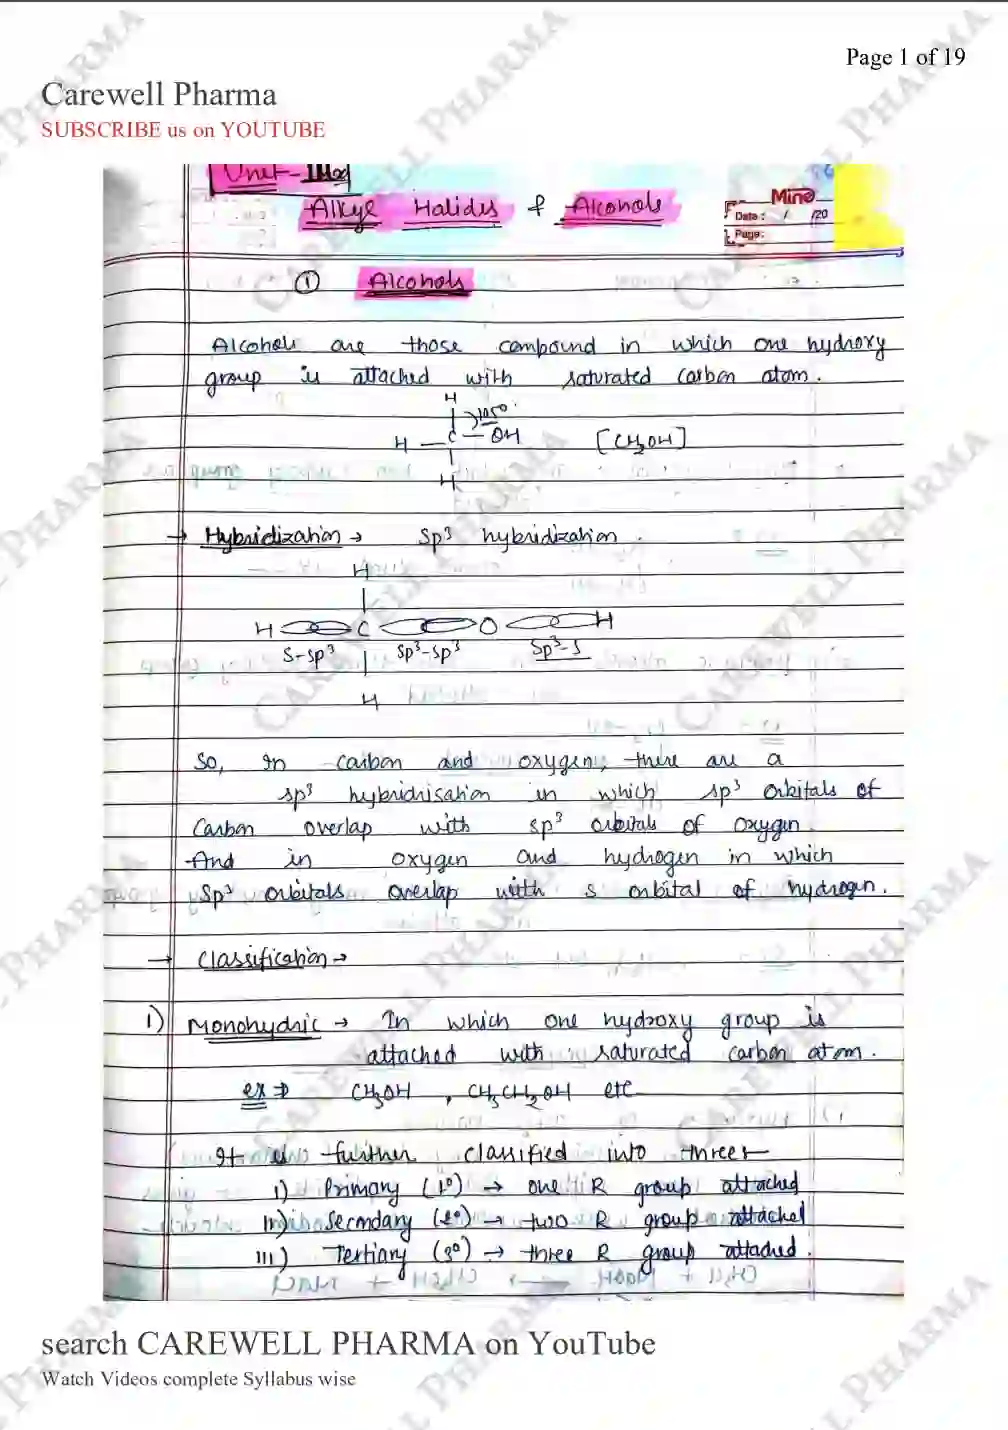 Page 1 of 19
Carewell Pharma
SUBSCRIBE us on YOUTUBE
Unit-
Alkyl Halides & Alcohols
Mino
Date: / /20
Page:
① Alcohols
Alcohols are those compound in which one hydroxy
group is attached with saturated carbon atom.
H
H — C — OH [CH3OH]
H
→ Hybridization → Sp³ hybridization.
H
H C O H
S-sp³ Sp³-sp³ Sp³-S
H
So, In carbon and oxygen, there are a
sp³ hybridrisation in which sp³ orbitals of
Carbon overlap with sp³ orbitals of oxygen.
And in oxygen and hydrogen in which
Sp³ orbitals overlap with s orbital of hydrogen.
→ Classification →
1) Monohydric → In which one hydroxy group is
attached with saturated carbon atom.
ex ⇒ CH3OH, CH3CH2OH etc
It is further classified into three →
i) Primary (1°) → one R group attached
ii) Secondary (2°) → two R group attached
iii) Tertiary (3°) → three R group attached.
search CAREWELL PHARMA on YouTube
Watch Videos complete Syllabus wise
CAREWELL PHARMA